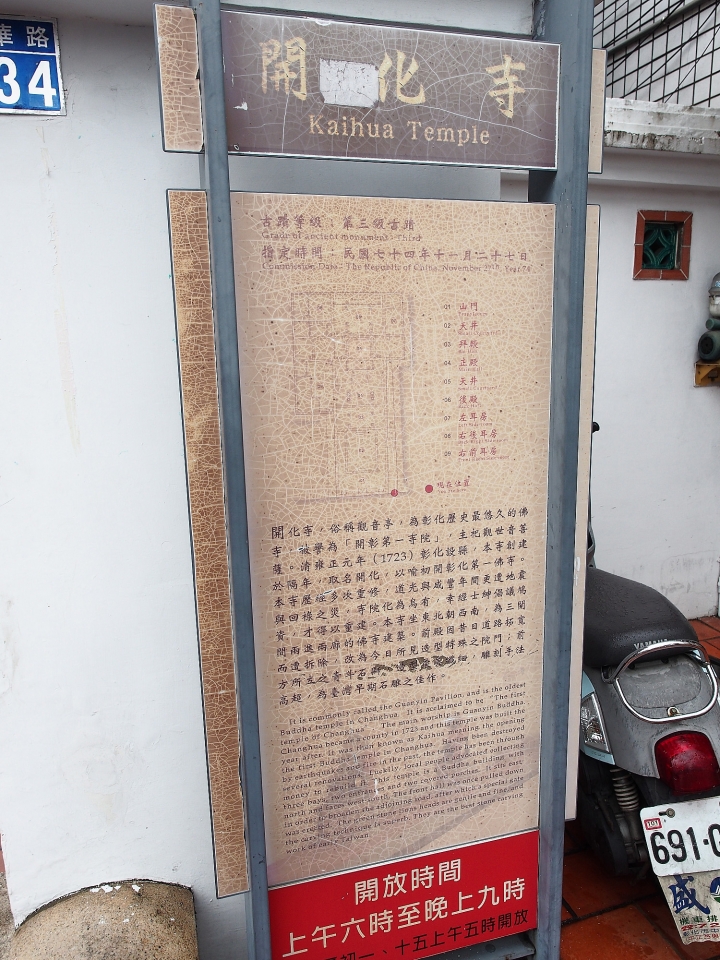 華路
34
開化寺
Kaihua Temple
古蹟等級：第三級古蹟
Grade of ancient monument: Third
指定時間：民國七十四年十一月二十七日
Commission Date: The Republic of China, November 27th, Year 74
01 山門
02 天井
03 拜殿
04 正殿
05 天井
06 後殿
07 左耳房
08 右後耳房
09 右前耳房
現在位置
開化寺，俗稱觀音亭，為彰化歷史最悠久的佛
寺，被譽為「開彰第一寺院」，主祀觀世音菩
薩。清雍正元年（1723）彰化設縣，本寺創建
於隔年，取名開化，以喻初開彰化第一佛寺。
本寺歷經多次重修，道光與咸豐年間更遭地震
與回祿之災，寺院化為烏有，幸經士紳倡議鳩
資，才得以重建。本寺坐東北朝西南，為三開
間兩進兩廊的佛寺建築。前殿因昔日道路拓寬
而遭拆除，改為今日所見造型特殊之院門；前
方所立之青斗石
細，雕刻手法
高超，為臺灣早期石雕之佳作。
It is commonly called the Guanyin Pavilion, and is the oldest
Buddha temple in Changhua. It is acclaimed to be "The first
temple of Changhua". The main worship is Guanyin Buddha.
Changhua became a county in 1723 and this temple was built the
year after. It was then known as Kaihua meaning the opening
the first Buddha temple in Changhua. Having been destroyed
by earthquakes and fire in the past, the temple has been through
several renovations. Luckily, local people advocated collecting
money to rebuild it. This temple is a Buddha building with
three bays, two entrances and two covered porches. It sits east-
north and faces west-south. The front hall was once pulled down
in order to broaden the adjoining road, after which a special gate
was erected. The green stone lions heads are gentle and fine, and
the carving technique is superb. They are the best stone carving
work of early Taiwan.
開放時間
上午六時至晚上九時
初一、十五上午五時開放
YAMAHA
691-
盛
機車排